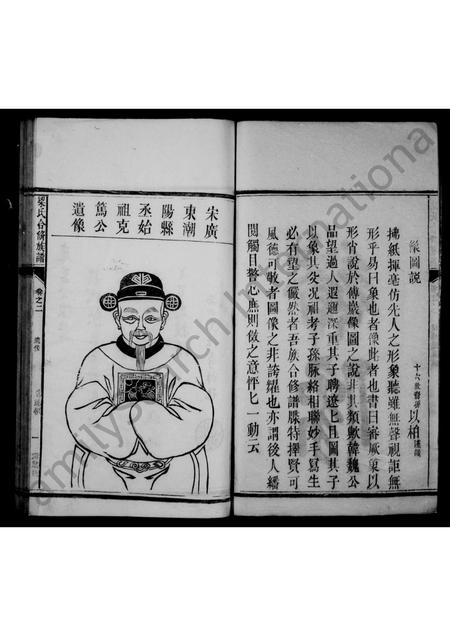 像圖說
十六世裔孫以柏謹識
揚紙揮毫仿先人之形象聽雖無聲視詎無
形乎易曰象也者像此者也書曰審厥象以
形肖說於傅巖像圖之說非其類歟韓魏公
品望過人遐邇深重其子聘遼七且圖其子
以象其父况祖考子孫脉絡相聯妙手寫生
必有望之儼然者吾族合修譜牒特擇賢可
風德可敬者圖像之非誇耀也亦謂後人繙
閱觸目警心應則倣之意怦七一動云
宋廣
東潮
陽縣
丞始
祖克
篤公
遺像
梁氏合修族譜
卷之二
遺像
一